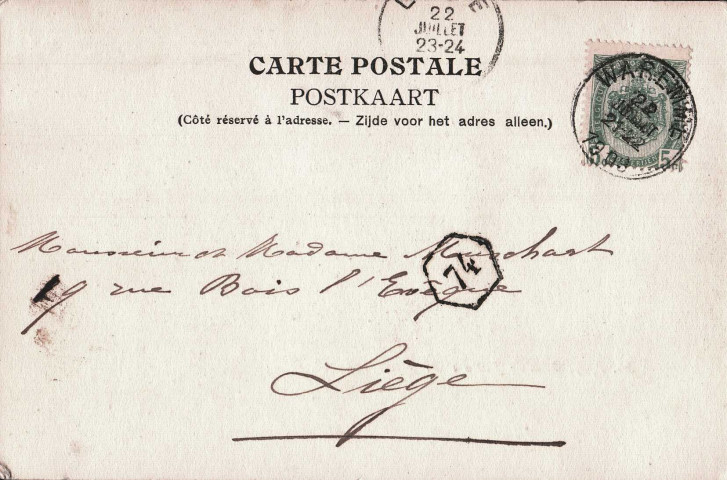 22
JUILLET
23-24
CARTE POSTALE
POSTKAART
(Côté réservé à l'adresse. — Zijde voor het adres alleen.)
WAREMME
22
JUILLET
21-22
5
Monsieur et Madame
74
19 rue Bois l'Evêque
Liège